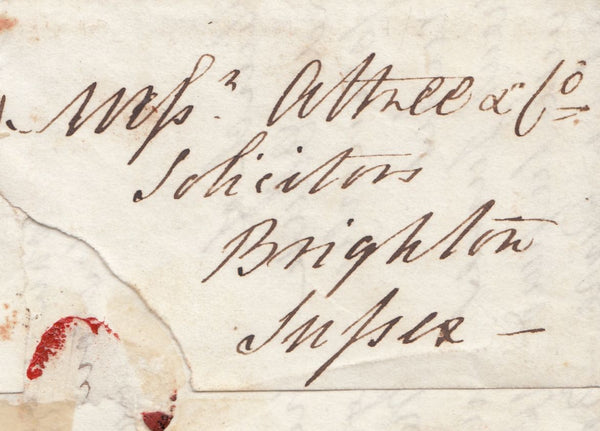 Messrs. Attree & Co
Solicitors
Brighton
Sussex —